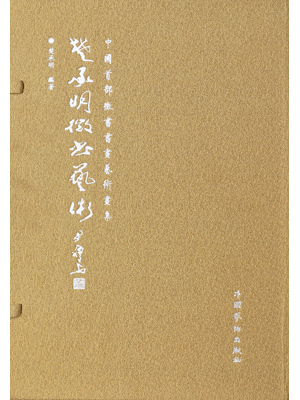 中國首部微書書畫藝術畫集
楚承明 編著
楚承明微書藝術
中國藝術出版社